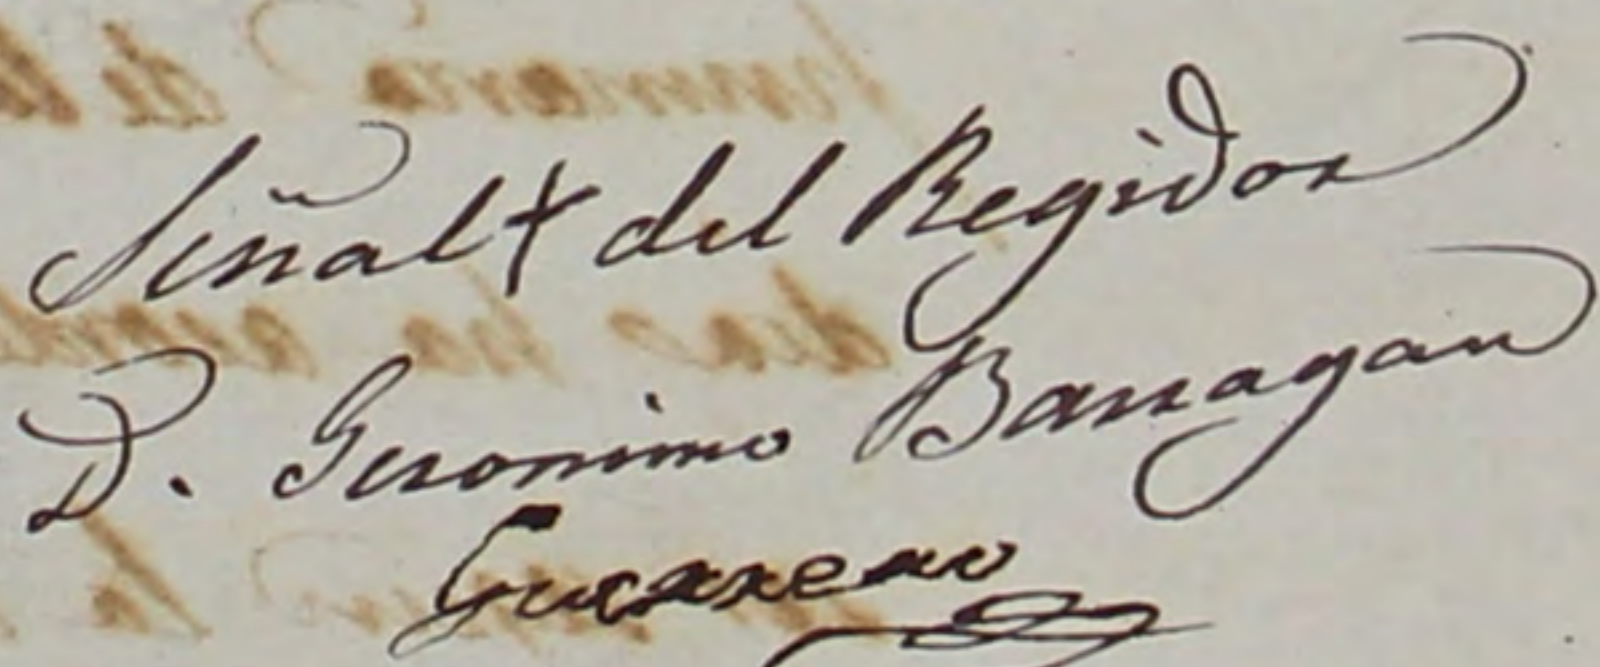 Señal + del Regidor
D. Geronimo Barragan